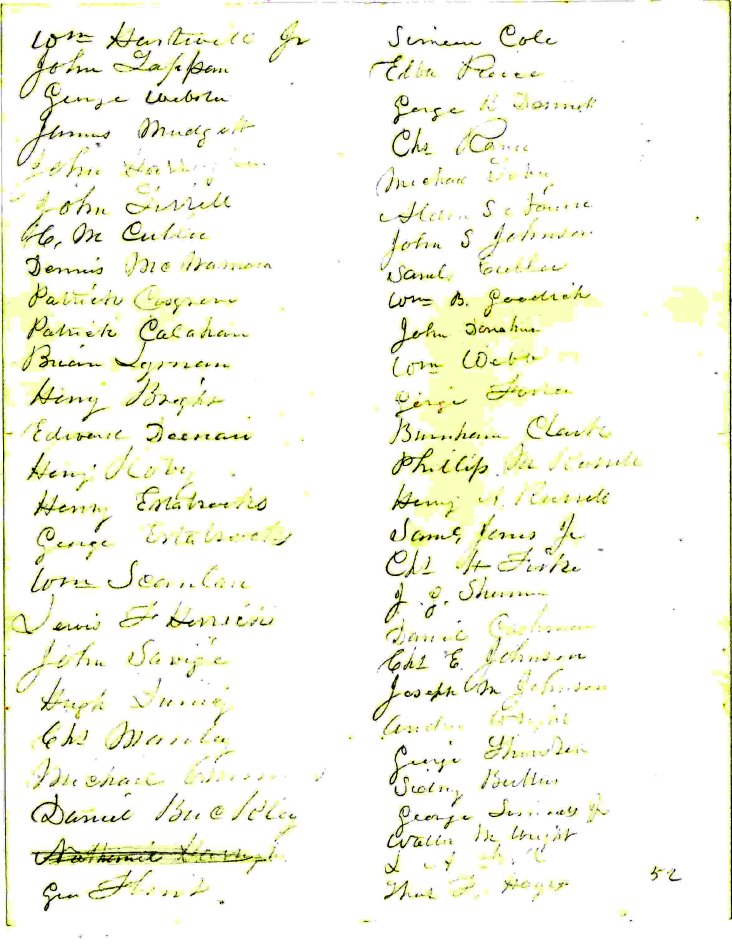 Wm Hartwell Jr
John Tappan
George Webster
James Mudgett
John
John Tirrell
C. M Cullen
Dennis McNamara
Patrick Cosgrove
Patrick Calahan
Brian Lyman
Henry Bright
Edward Deenan
Henry Roby
Henry Estabrooks
George Estabrooks
Wm Scanlan
Lewis F Herrick
John Savige
Hugh
Chs Manley
Michael
Daniel Buckley
Nathaniel
Geo Flint.
Simeon Cole
Elba Pierce
George B Dennett
Chs
Michael
John S Johnson
Saml Cutler
Wm B. Goodrich
John Donahue
Wm Webb
George
Burnham Clark
Phillip M Russell
Henry A Russell
Saml Jones Jr
Chs H Fiske
J. J. Sherman
Daniel Cushman
Chs E. Johnson
Joseph M Johnson
Andw Wright
George Thurston
Sidney Butler
George Jr
Walter M Wright
Thos F. Hayes
52